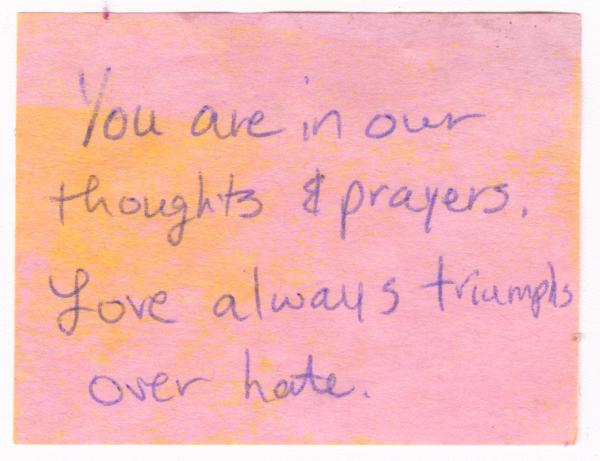 You are in our
thoughts & prayers.
Love always triumphs
over hate.